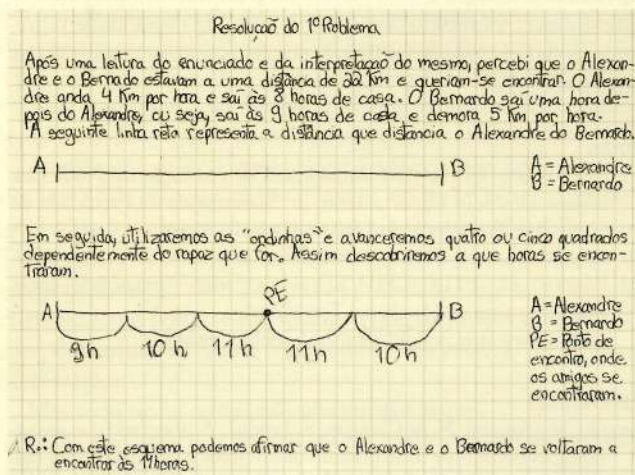 Resolução do 1º Problema
Após uma leitura do enunciado e da interpretação do mesmo, percebi que o Alexan-
dre e o Bernado estavam a uma distância de 22 Km e queriam-se encontrar. O Alexan-
dre anda 4 Km por hora e sai às 8 horas de casa. O Bernardo sai uma hora de-
pois do Alexandre, ou seja, sai às 9 horas de casa, e demora 5 Km por hora.
A seguinte linha reta representa a distância que distancia o Alexandre do Bernardo.
A B
A = Alexandre
B = Bernardo
Em seguida, utilizaremos as "ondinhas" e avanceremos quatro ou cinco quadrados
dependentemente do rapaz que for. Assim descobriremos a que horas se encon-
traram.
PE
A B
9h 10h 11h 11h 10h
A = Alexandre
B = Bernardo
PE = Ponto de
encontro, onde
os amigos se
encontraram.
R.: Com este esquema podemos afirmar que o Alexandre e o Bernardo se voltaram a
encontrar às 11horas.